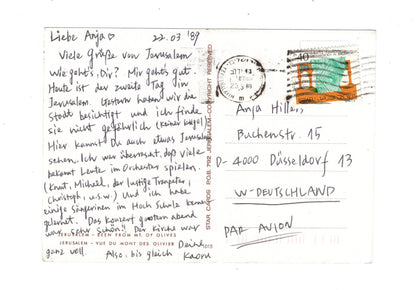 Liebe Anja♡ 22.03 '89
Viele Grüße von Jerusalem
Wie geht's Dir? Mir geht's gut.
Heute ist der zweite Tag im
Jerusalem. Gestern haben wir die
Stadt besichtigt und ich finde
sie nicht gefährlich (keiner Kugel)
Hier kannst Du auch etwas Jerusalem
sehen. Ich war überrascht, dass viele
bekannt Leute im Orchester spielen.
(Knut, Michael, der lustige Trompeter,
Christoph, u.s.w) und ich habe
einige Sängerinen im Hoch Schule kennen
gelernt. Das Konzert gestern abend
war sehr schön!! Der Kirche war
ganz voll.
Also. bis gleich
Deine
Kaoru
JERUSALEM - SEEN FROM MT. OF OLIVES
JERUSALEM - VUE DU MONT DES OLIVIER
STAR CARDS P.O.B. 752 JERUSALEM COPYRIGHT RESERVED
40
Anja Hiller,
Buchenstr. 15
D-4000 Düsseldorf 13
W-DEUTSCHLAND
PAR AVION